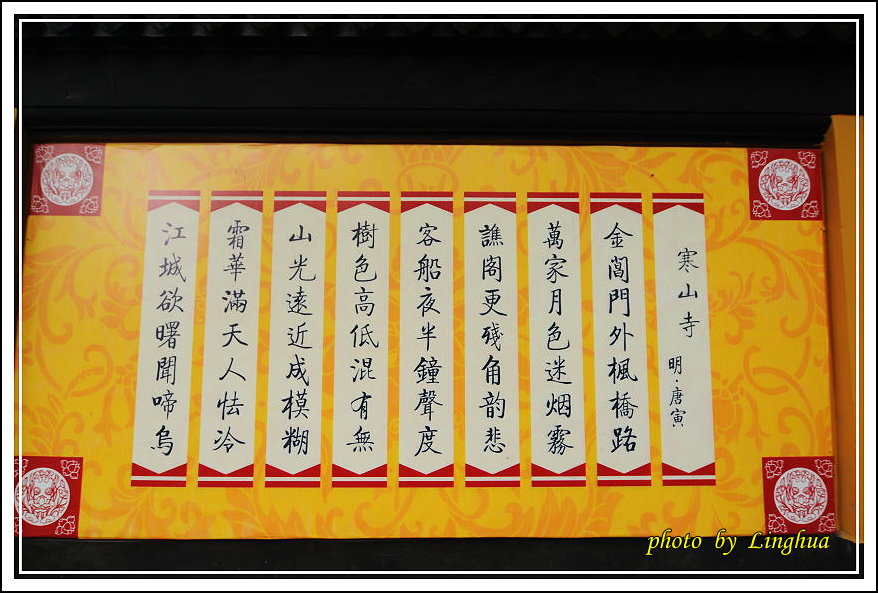 寒山寺
明·唐寅
金閶門外楓橋路
萬家月色迷烟霧
譙閣更殘角韵悲
客船夜半鐘聲度
樹色高低混有無
山光遠近成模糊
霜華滿天人怯冷
江城欲曙聞啼烏
photo by Linghua